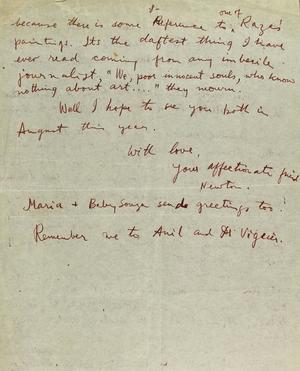 because there is some Reference to one of Raza's
paintings. Its the daftest thing I have
ever read coming from any imbecile
journalist, "We, poor innocent souls, who know
nothing about art...." they mourn.
Well I hope to see you both in
August this year.
With love,
Your affectionate friend
Newton.
Maria + Baby Souza send greetings too!
Remember me to Anil and